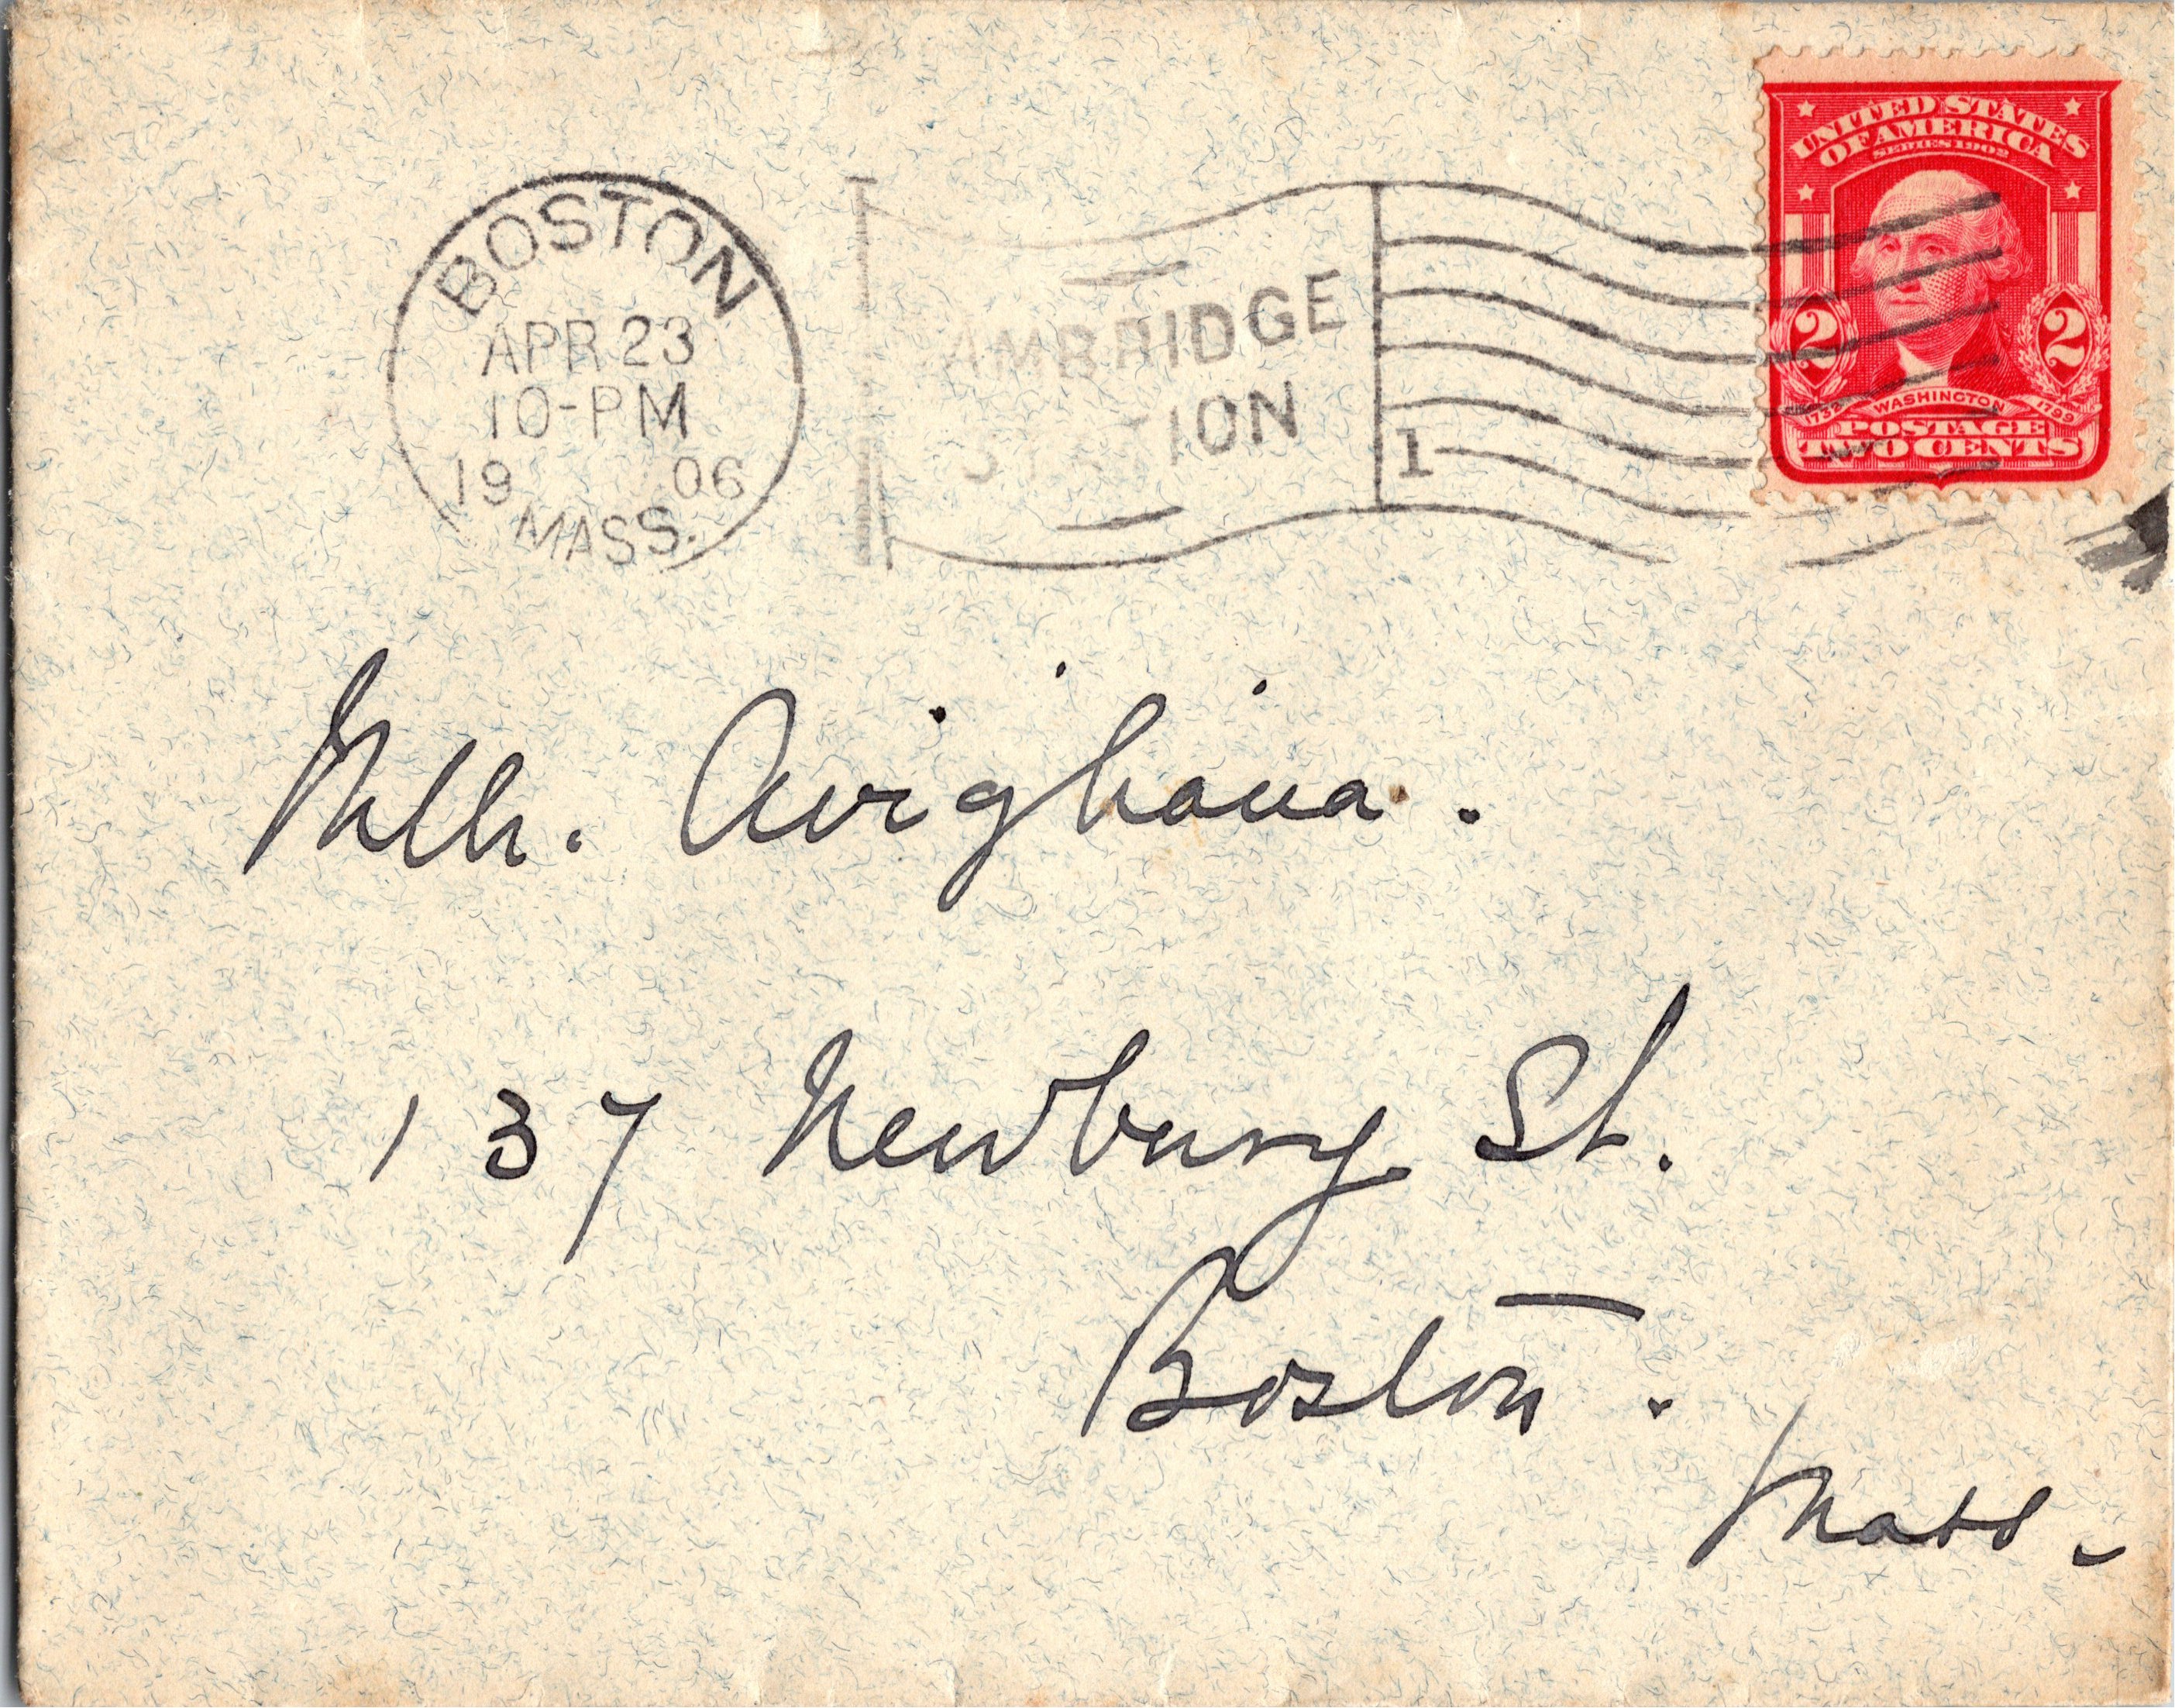 BOSTON
APR 23
10-PM
19 06
MASS.
AMBRIDGE
ST TION
1
UNITED STATES
OF AMERICA
SERIES 1902
2 2
1732 WASHINGTON 1799
POSTAGE
TWO CENTS
Mlle. Avigliana.
137 Newbury St.
Boston.
Mass.